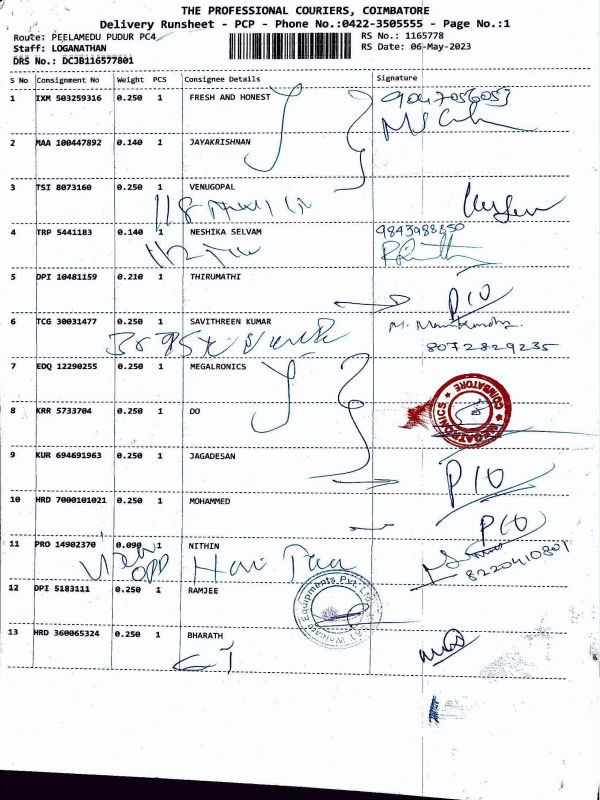 THE PROFESSIONAL COURIERS, COIMBATORE
Delivery Runsheet - PCP - Phone No.:0422-3505555 - Page No.:1
Route: PEELAMEDU PUDUR PC4
RS No.: 1165778
Staff: LOGANATHAN
RS Date: 06-May-2023
DRS No.: DCJB116577801
S No Consignment No Weight PCS Consignee Details Signature
1 IXM 503259316 0.250 1 FRESH AND HONEST 9047056053
2 MAA 100447892 0.140 1 JAYAKRISHNAN
3 TSI 8073160 0.250 1 VENUGOPAL
118
4 TRP 5441183 0.140 1 NESHIKA SELVAM 9843988850
5 DPI 10481159 0.210 1 THIRUMATHI
P10
6 TCG 30031477 0.250 1 SAVITHREEN KUMAR
8072829235
7 EDQ 12290255 0.250 1 MEGALRONICS
MEGATRONICS COIMBATORE
8 KRR 5733704 0.250 1 DO
9 KUR 694691963 0.250 1 JAGADESAN
P10
10 HRD 7000101021 0.250 1 MOHAMMED
P10
11 PRO 14902370 0.090 1 NITHIN
OPP
8220410801
12 DPI 5183111 0.250 1 RAMJEE
Equipments Pvt. Ltd.
13 HRD 360065324 0.250 1 BHARATH